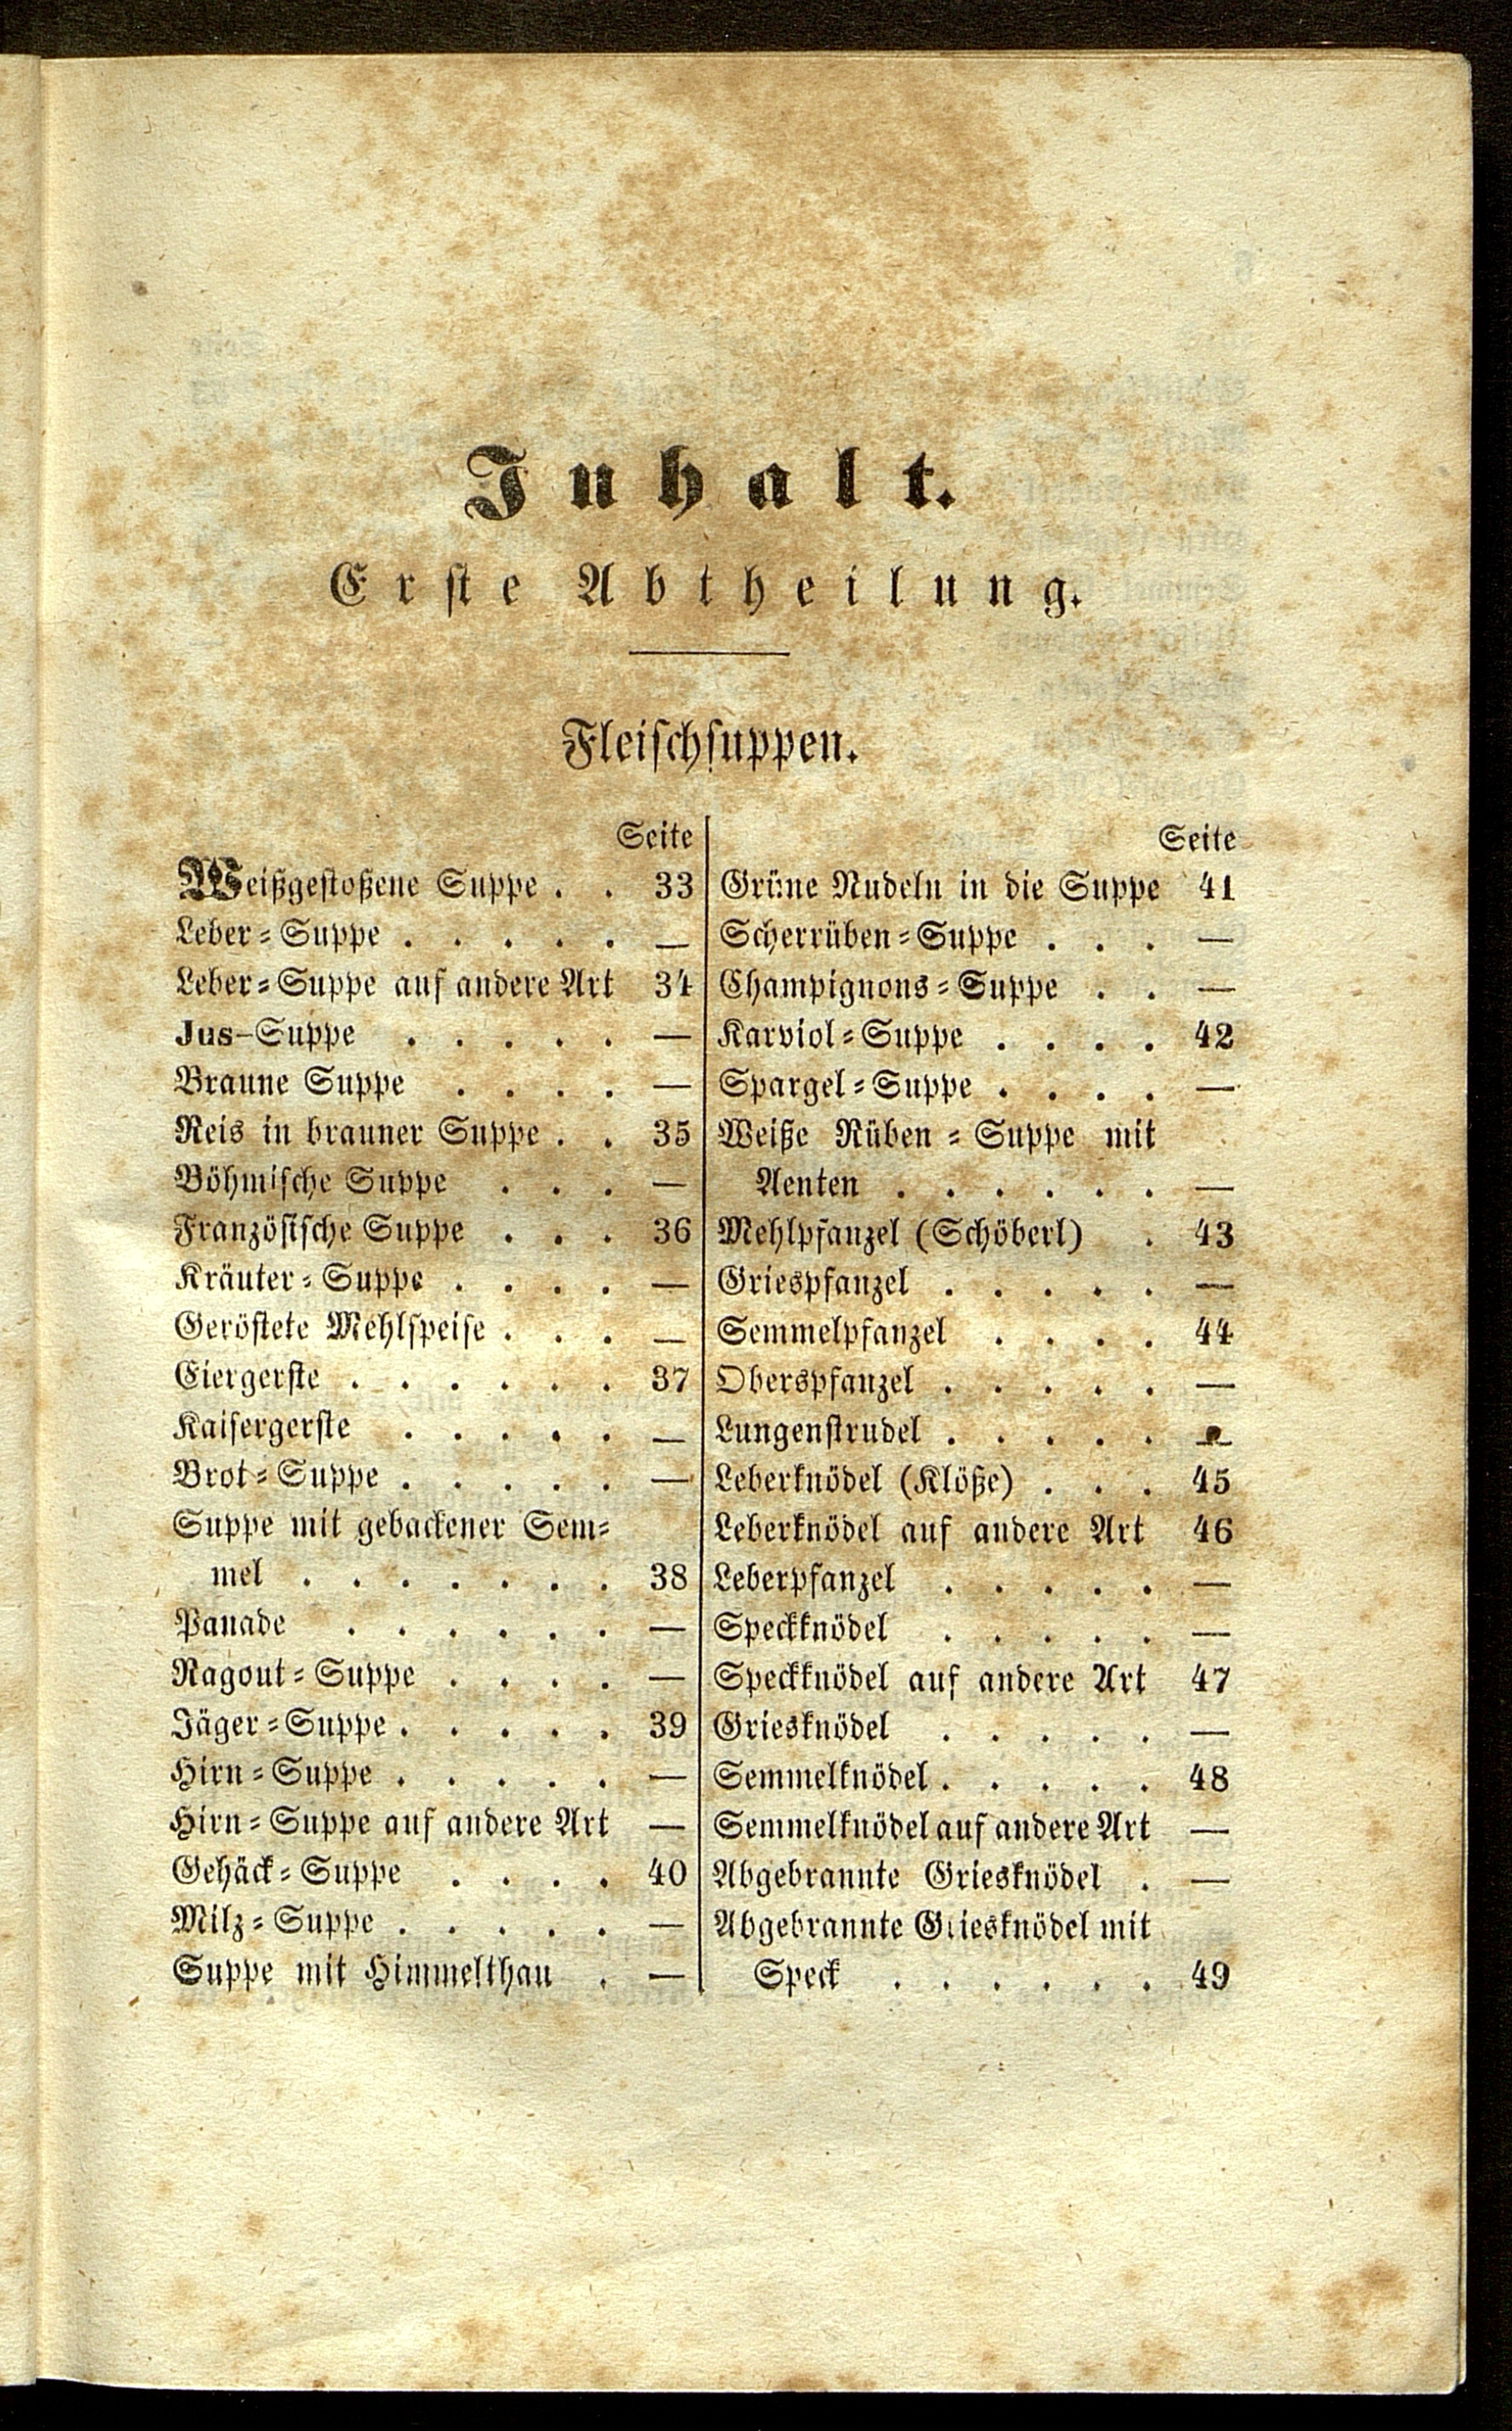 Inhalt.
Erste Abtheilung.
Fleischsuppen.
Seite
Weißgestoßene Suppe . . 33
Leber-Suppe . . . . . —
Leber-Suppe auf andere Art 34
Jus-Suppe . . . . . —
Braune Suppe . . . . —
Reis in brauner Suppe . . 35
Böhmische Suppe . . . —
Französische Suppe . . . 36
Kräuter-Suppe . . . . —
Geröstete Mehlspeise . . . —
Eiergerste . . . . . . 37
Kaisergerste . . . . . —
Brot-Suppe . . . . . —
Suppe mit gebackener Sem-
mel . . . . . . . 38
Panade . . . . . . —
Ragout-Suppe . . . . —
Jäger-Suppe . . . . . 39
Hirn-Suppe . . . . . —
Hirn-Suppe auf andere Art —
Gehäck-Suppe . . . . 40
Milz-Suppe . . . . . —
Suppe mit Himmelthau . —
Seite
Grüne Nudeln in die Suppe 41
Scherrüben-Suppe . . . —
Champignons-Suppe . . —
Karviol-Suppe . . . . 42
Spargel-Suppe . . . . —
Weiße Rüben-Suppe mit
Aenten . . . . . . —
Mehlpfanzel (Schöberl) . 43
Griespfanzel . . . . . —
Semmelpfanzel . . . . 44
Oberspfanzel . . . . . —
Lungenstrudel . . . . . —
Leberknödel (Klöße) . . . 45
Leberknödel auf andere Art 46
Leberpfanzel . . . . . —
Speckknödel . . . . . —
Speckknödel auf andere Art 47
Griesknödel . . . . . —
Semmelknödel . . . . . 48
Semmelknödel auf andere Art —
Abgebrannte Griesknödel . —
Abgebrannte Griesknödel mit
Speck . . . . . . 49